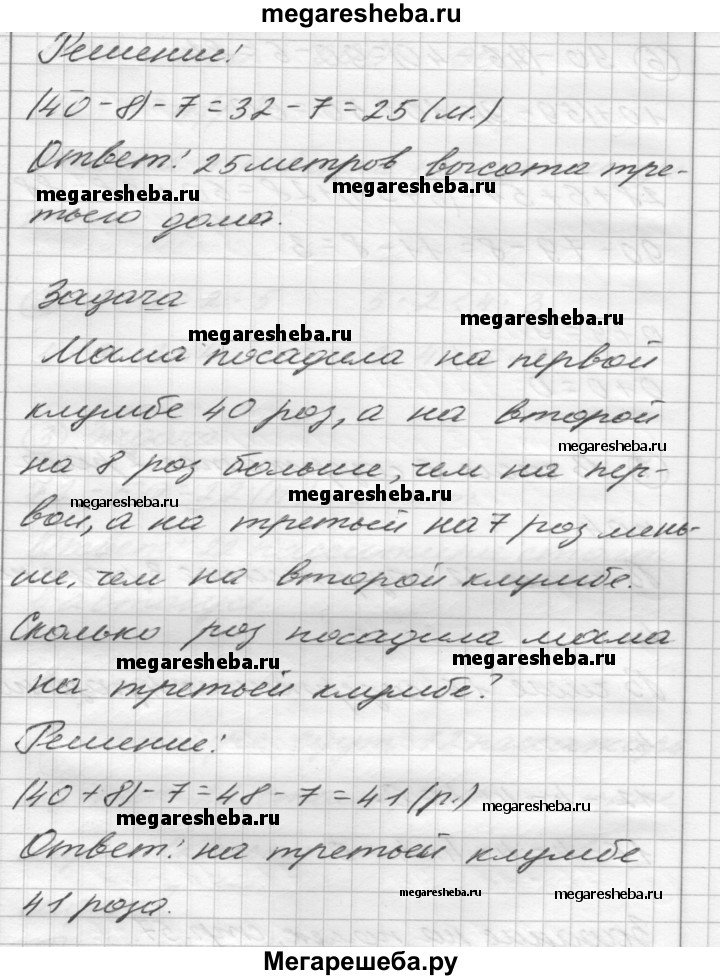 megaresheba.ru
Решение!
(40-8)-7=32-7=25(м.)
Ответ: 25 метров высота тре-
megaresheba.ru megaresheba.ru
тьего дома.
Задача
megaresheba.ru megaresheba.ru
Мама посадила на первой
клумбе 40 роз, а на второй
megaresheba.ru
на 8 роз больше, чем на пер-
megaresheba.ru megaresheba.ru
вой, а на третьей на 7 роз мень-
ше, чем на второй клумбе.
Сколько роз посадила мама
megaresheba.ru megaresheba.ru
на третьей клумбе?
Решение:
(40+8)-7=48-7=41(р.) megaresheba.ru
megaresheba.ru
Ответ: на третьей клумбе
megaresheba.ru megaresheba.ru
41 роза.
Мегарешеба.ру